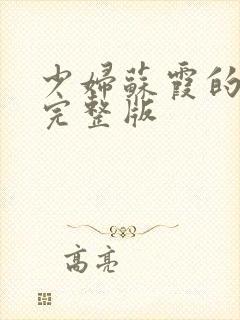 少婦蘇霞的
完整版
高亮